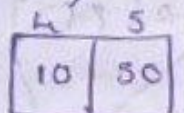 4 5
10 50